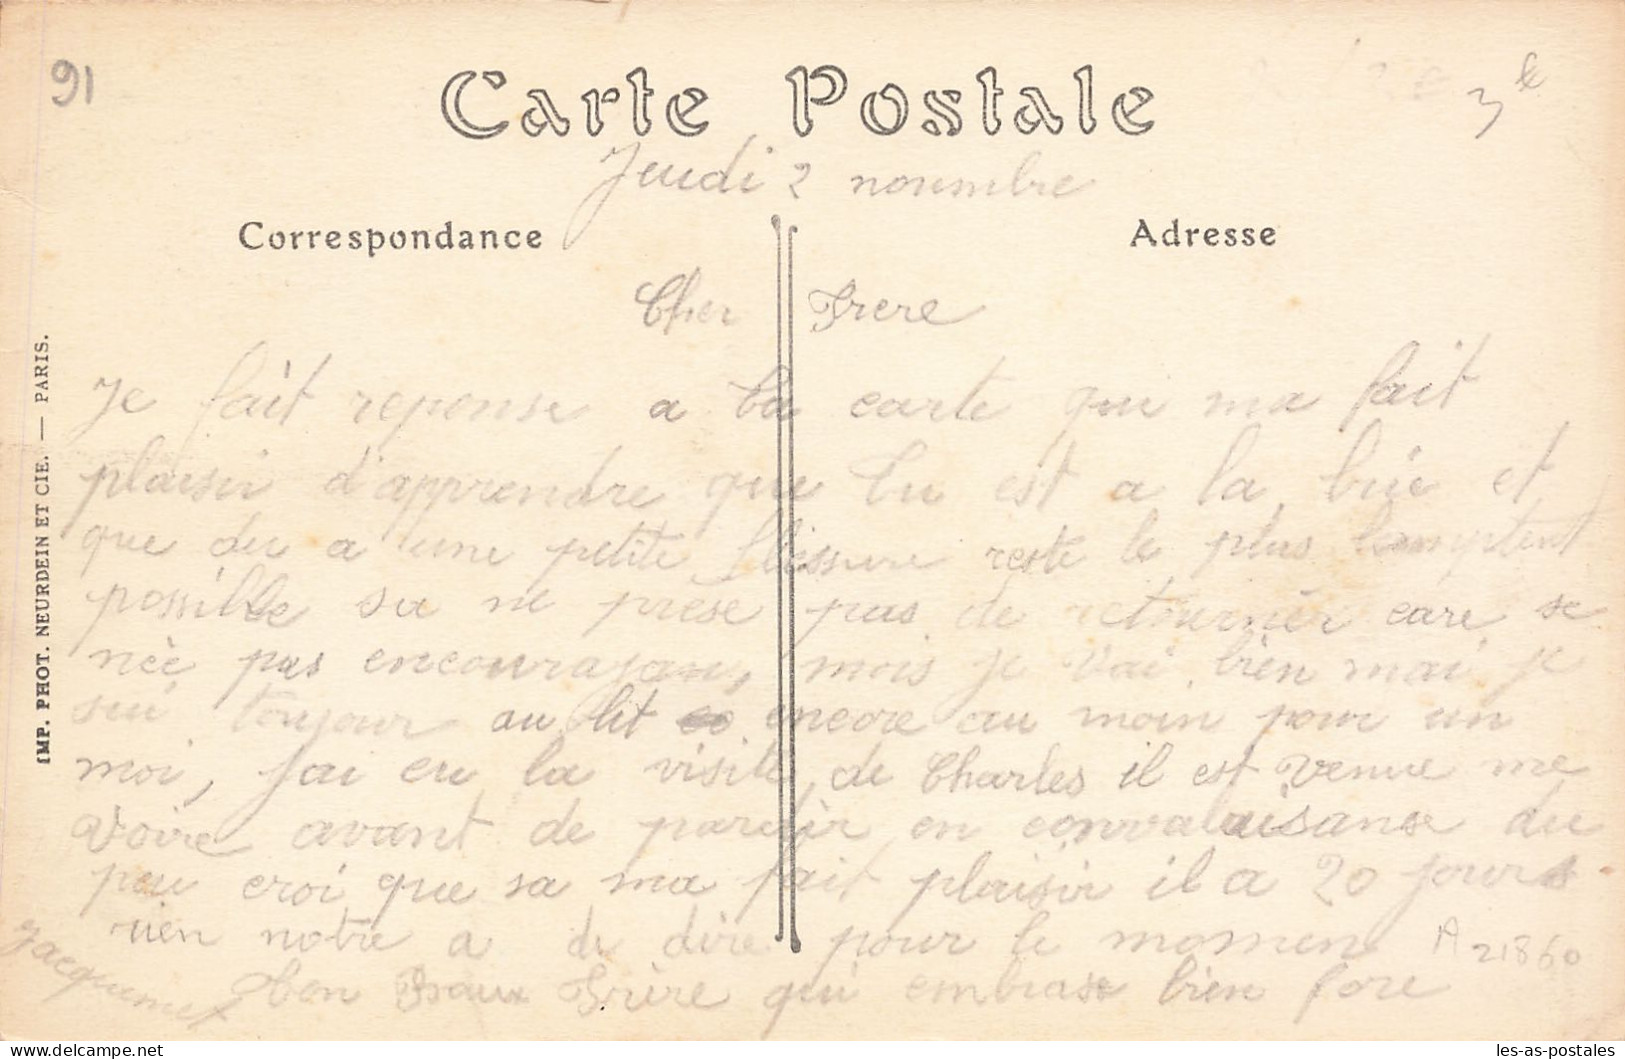 91
3 €
Carte Postale
Jeudi 2 novembre
Correspondance
Adresse
Cher Frere
Je fait reponse a ta carte que ma fait
plaisir d'apprendre que tu est a la et
que du a une petite blessure reste le plus lomptent
possible sa ne prese pas de retourner care se
née pas encourajan, mois je vai bien mai je
sui toujour au lit encore au moin pour un
moi, jai eu la visite de Charles il est venue me
voire avant de pardir en convalaisanse du
peu croi que sa ma fait plaisir il a 20 jours
rien notre a de dire pour le momen
Ton Beaux Frère qui embrass bien fore
Jacquemet
A 21860
IMP. PHOT. NEURDEIN ET CIE. — PARIS.
les-as-postales
delcampe.net